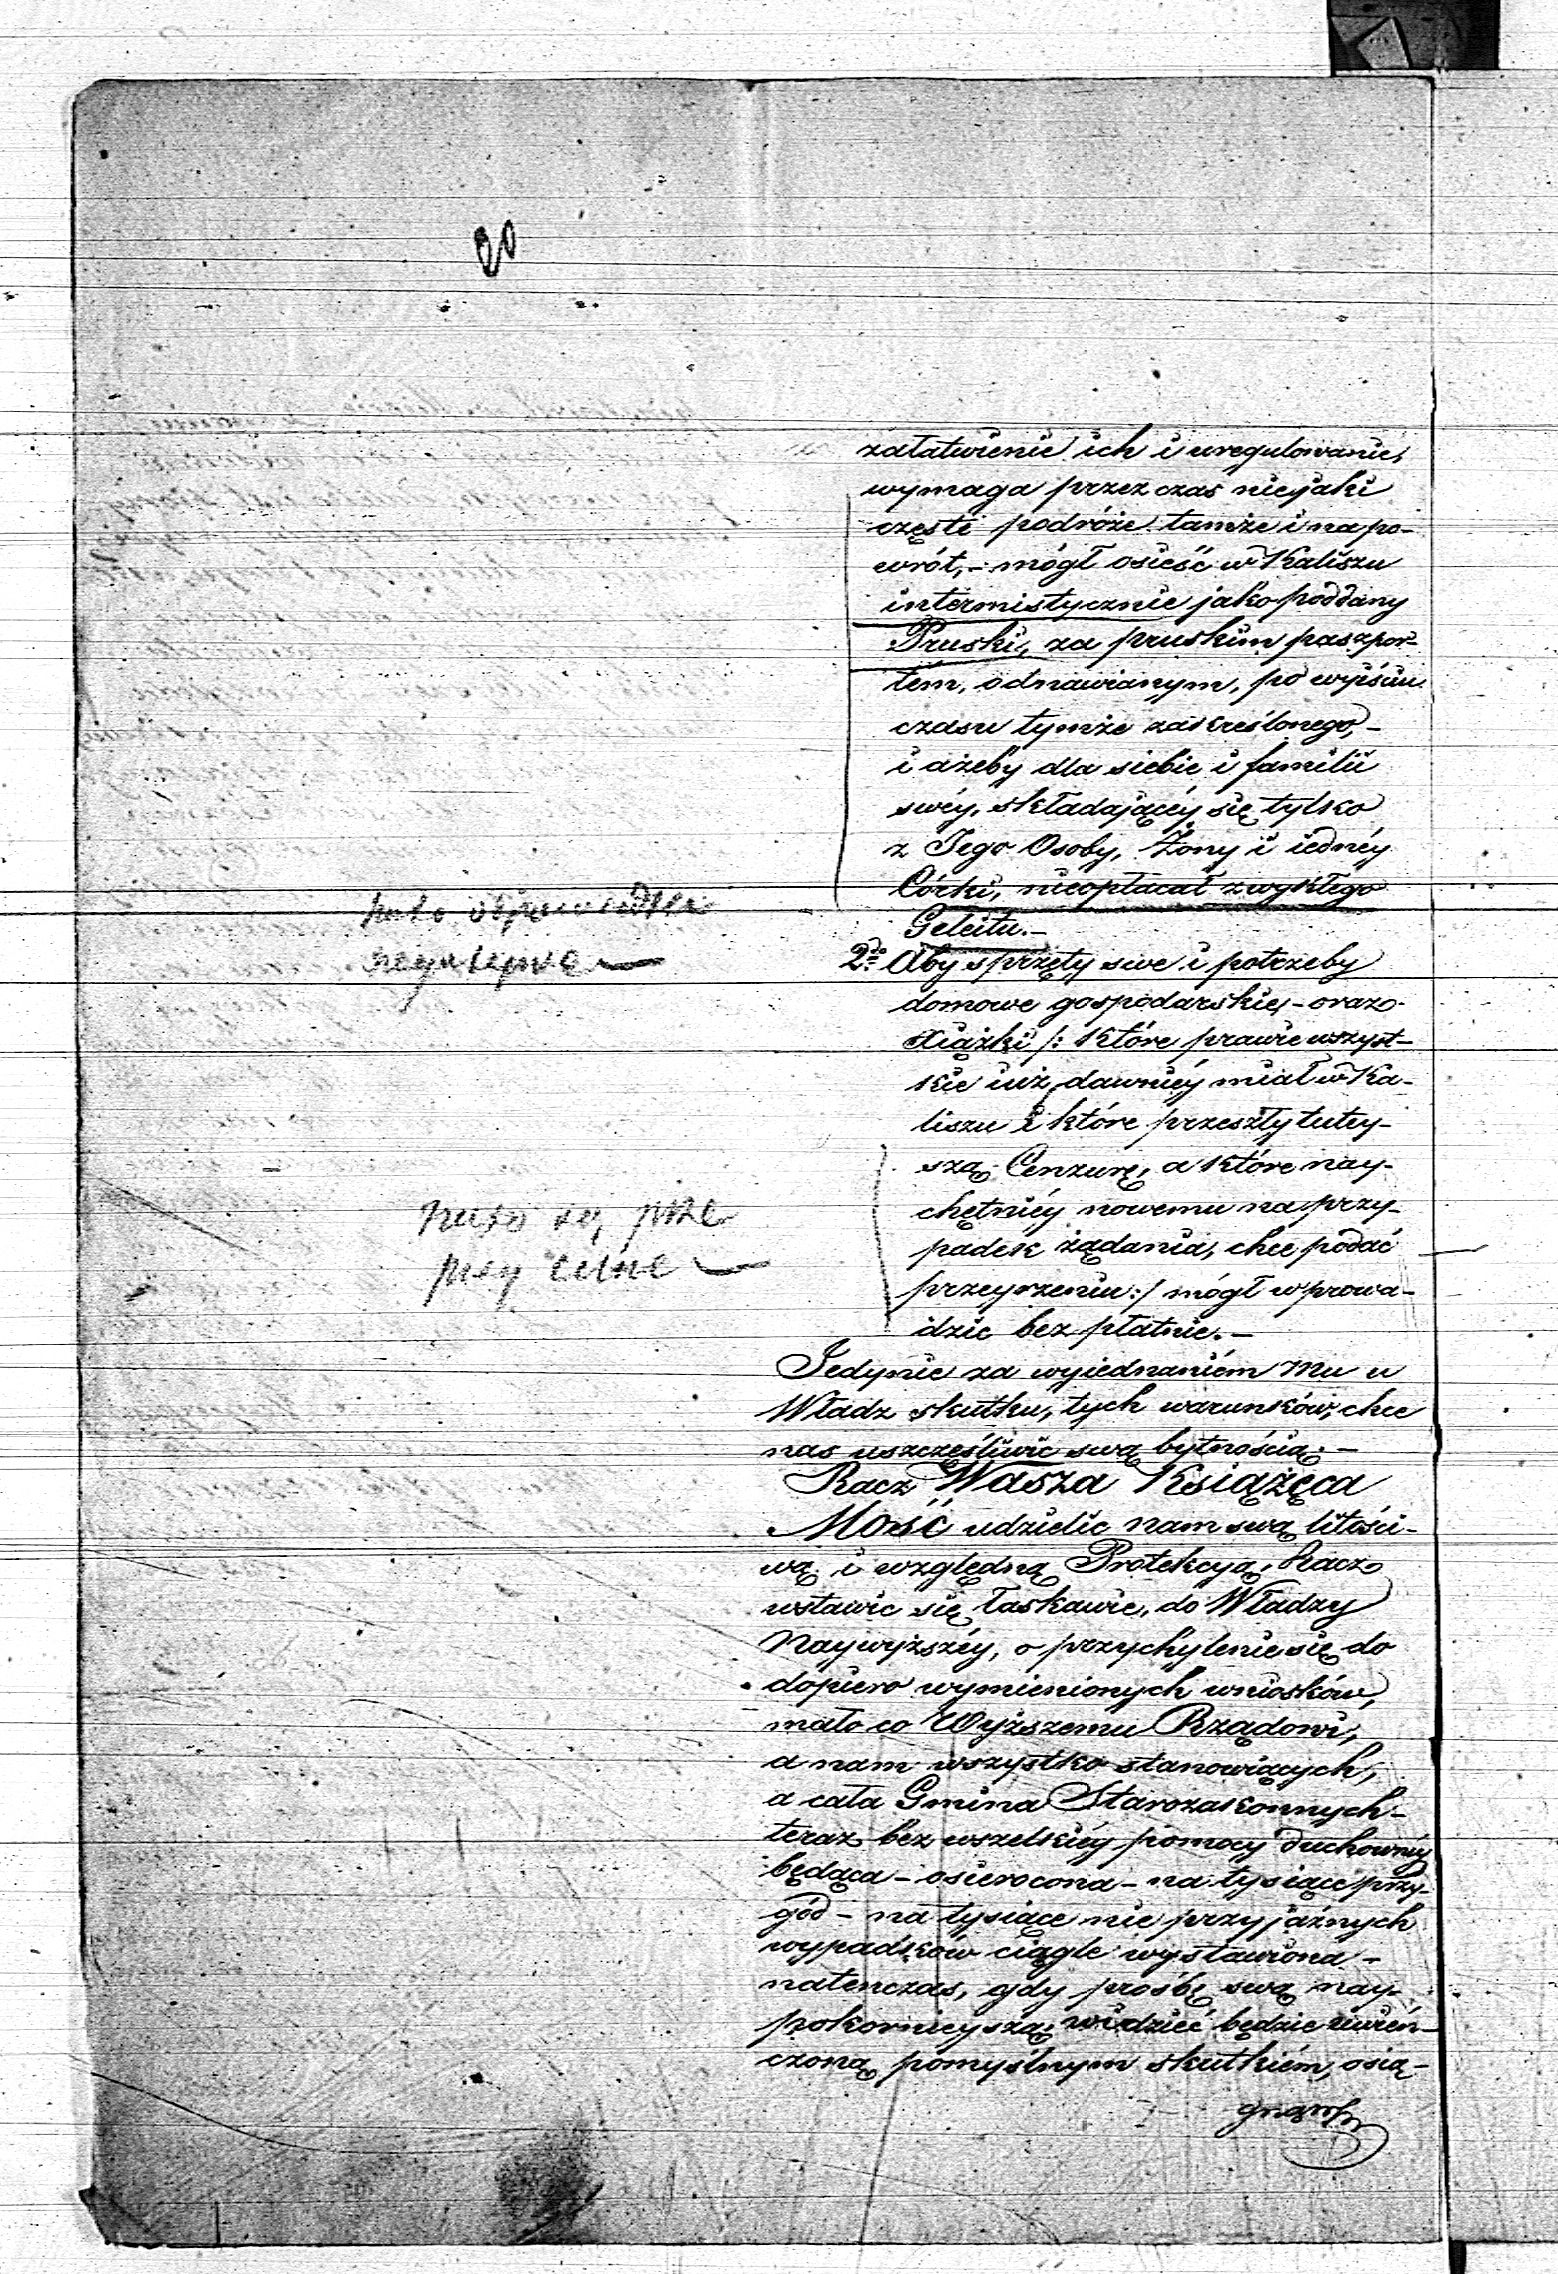 20
załatwienie ich i uregulowanie,
wymaga przez czas nieyjaki
częste podróże tamże i na po-
wrót, - mógł osieść w Kaliszu
intermistycznie jako poddany
Pruski, za pruskim paszpor-
tem, odnawianym, po wyiściu
czasu tymże zakreślonego, -
i ażeby dla siebie i familii
swéy, składającéy się tylko
z Jego Osoby, Żony i iednéy
Córki, nieopłacał zwykłego
Geleitu. -
2do Aby sprzęty swe i potrzeby
domowe gospodarskie, - oraz
Xiążki /: które prawie wszyst-
kie iuż dawniéy miał w Ka-
liszu i które przeszły tutey-
szą Cenzurę, a które nay-
chętniéy nowemu na przy-
padek żądania, chce podać
przeyrzeniu :/ mógł wprowa-
dzić bez płatnie. -
Jedynie za wyiednaniém Mu u
Władz skutku, tych warunków, chce
nas uszczęśliwić swą bytnością. -
Racz Wasza Książęca
Mość udzielić nam swą litości-
wą i względną Protekcyą, Racz
wstawić się łaskawie, do Władzy
Naywyższéy, o przychylenie się do
dopiero wymienionych wniosków,
mało co Wyższemu Rządowi,
a nam wszystko stanowiących,
a cała Gmina Starozakonnych -
teraz bez wszelkiéy pomocy duchownéy
będąca - osierocona - na tysiące przy-
gód - na tysiące nie przyjaźnych
wypadków ciągle wystawiona -
natenczas, gdy prośbę swą nay-
pokornieyszą widzieć będzie uwień-
czoną pomyślnym skutkiém, osią-